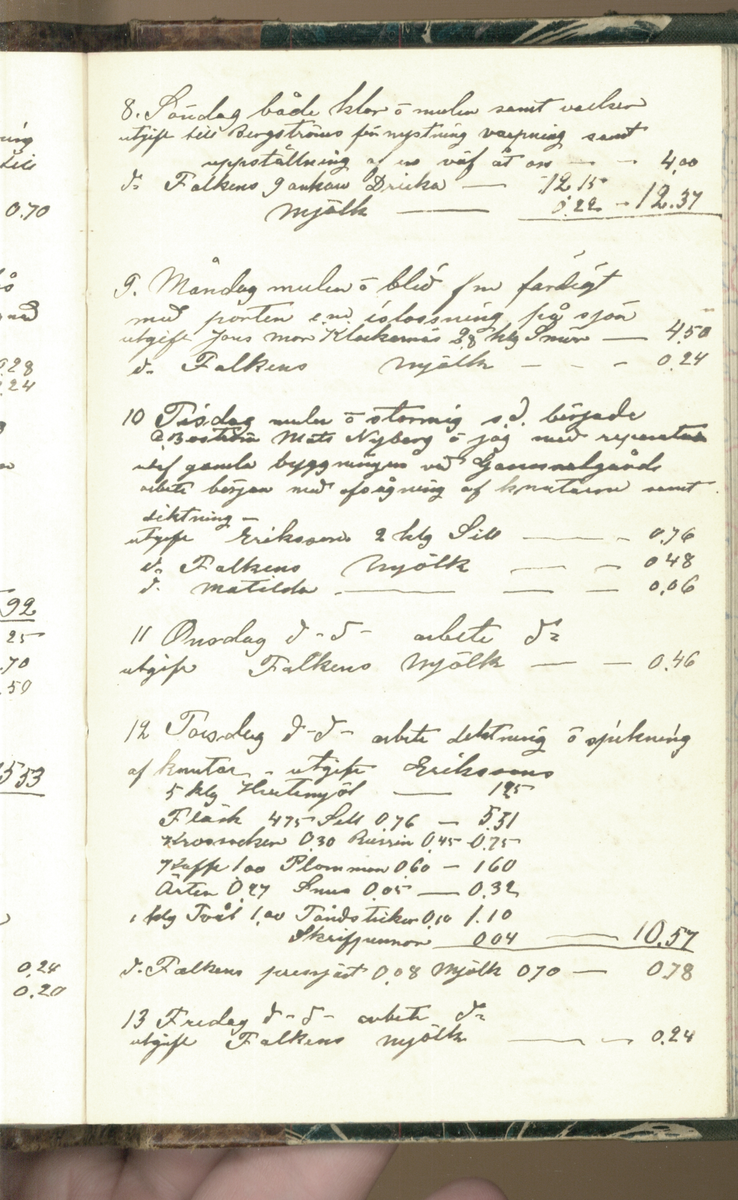 ing
till
0.70
ås
0.28
0.24
92
25
.70
.50
553
0.24
0.20
8. Söndag både klar ö mulen samt vacker
utgift till Bergströms för nystning varpning samt
uppställning af en väf åt oss — — 4,00
d:o Falkens 9 ankare Dricka — 12 15
Mjölk — 0.22 - 12.37
9. Måndag mulen ö blid f m färdigt
med porten e.m islossning på sjön
utgift Jons mor Klockarnäs 2,8 klg Smör — 4.50
d:o Falkens Mjölk — — - 0.24
10 Tisdag mulen ö stormig s.d. började
Boström Mats Nyberg ö jag med reparation
utaf gamla byggningen vid Gammalgårds
arbete början med afsågning af knutarne samt
diktning —
utgift Erikssons 2 klg Sill — - 0,76
d:o Falkens Mjölk — — 0.48
d:o Matilda — — — 0.06
11 Onsdag d - d - arbete d:o
utgift Falkens Mjölk — — 0.46
12 Torsdag d - d - arbete diktning ö spikning
af knutar - utgift Erikssons
5 klg Hvetemjöl — 1 25
Fläsk 4 75 Sill 0 76 — 5.51
Krossocker 0.30 Russin 0.45 - 0.75
Kaffe 1 00 Plommon 0.60 — 1 60
Ärter 0,27 Snus 0.05 — 0.32
1 klg Tvål 1,00 Tändstickor 0,10 1.10
Skrifpennor 0 04 — 10,57
d:o Falkens pressjäst 0.08 Mjölk 0.70 — 0.78
13 Fredag d - d - arbete d:o
utgift Falkens Mjölk — — 0.24